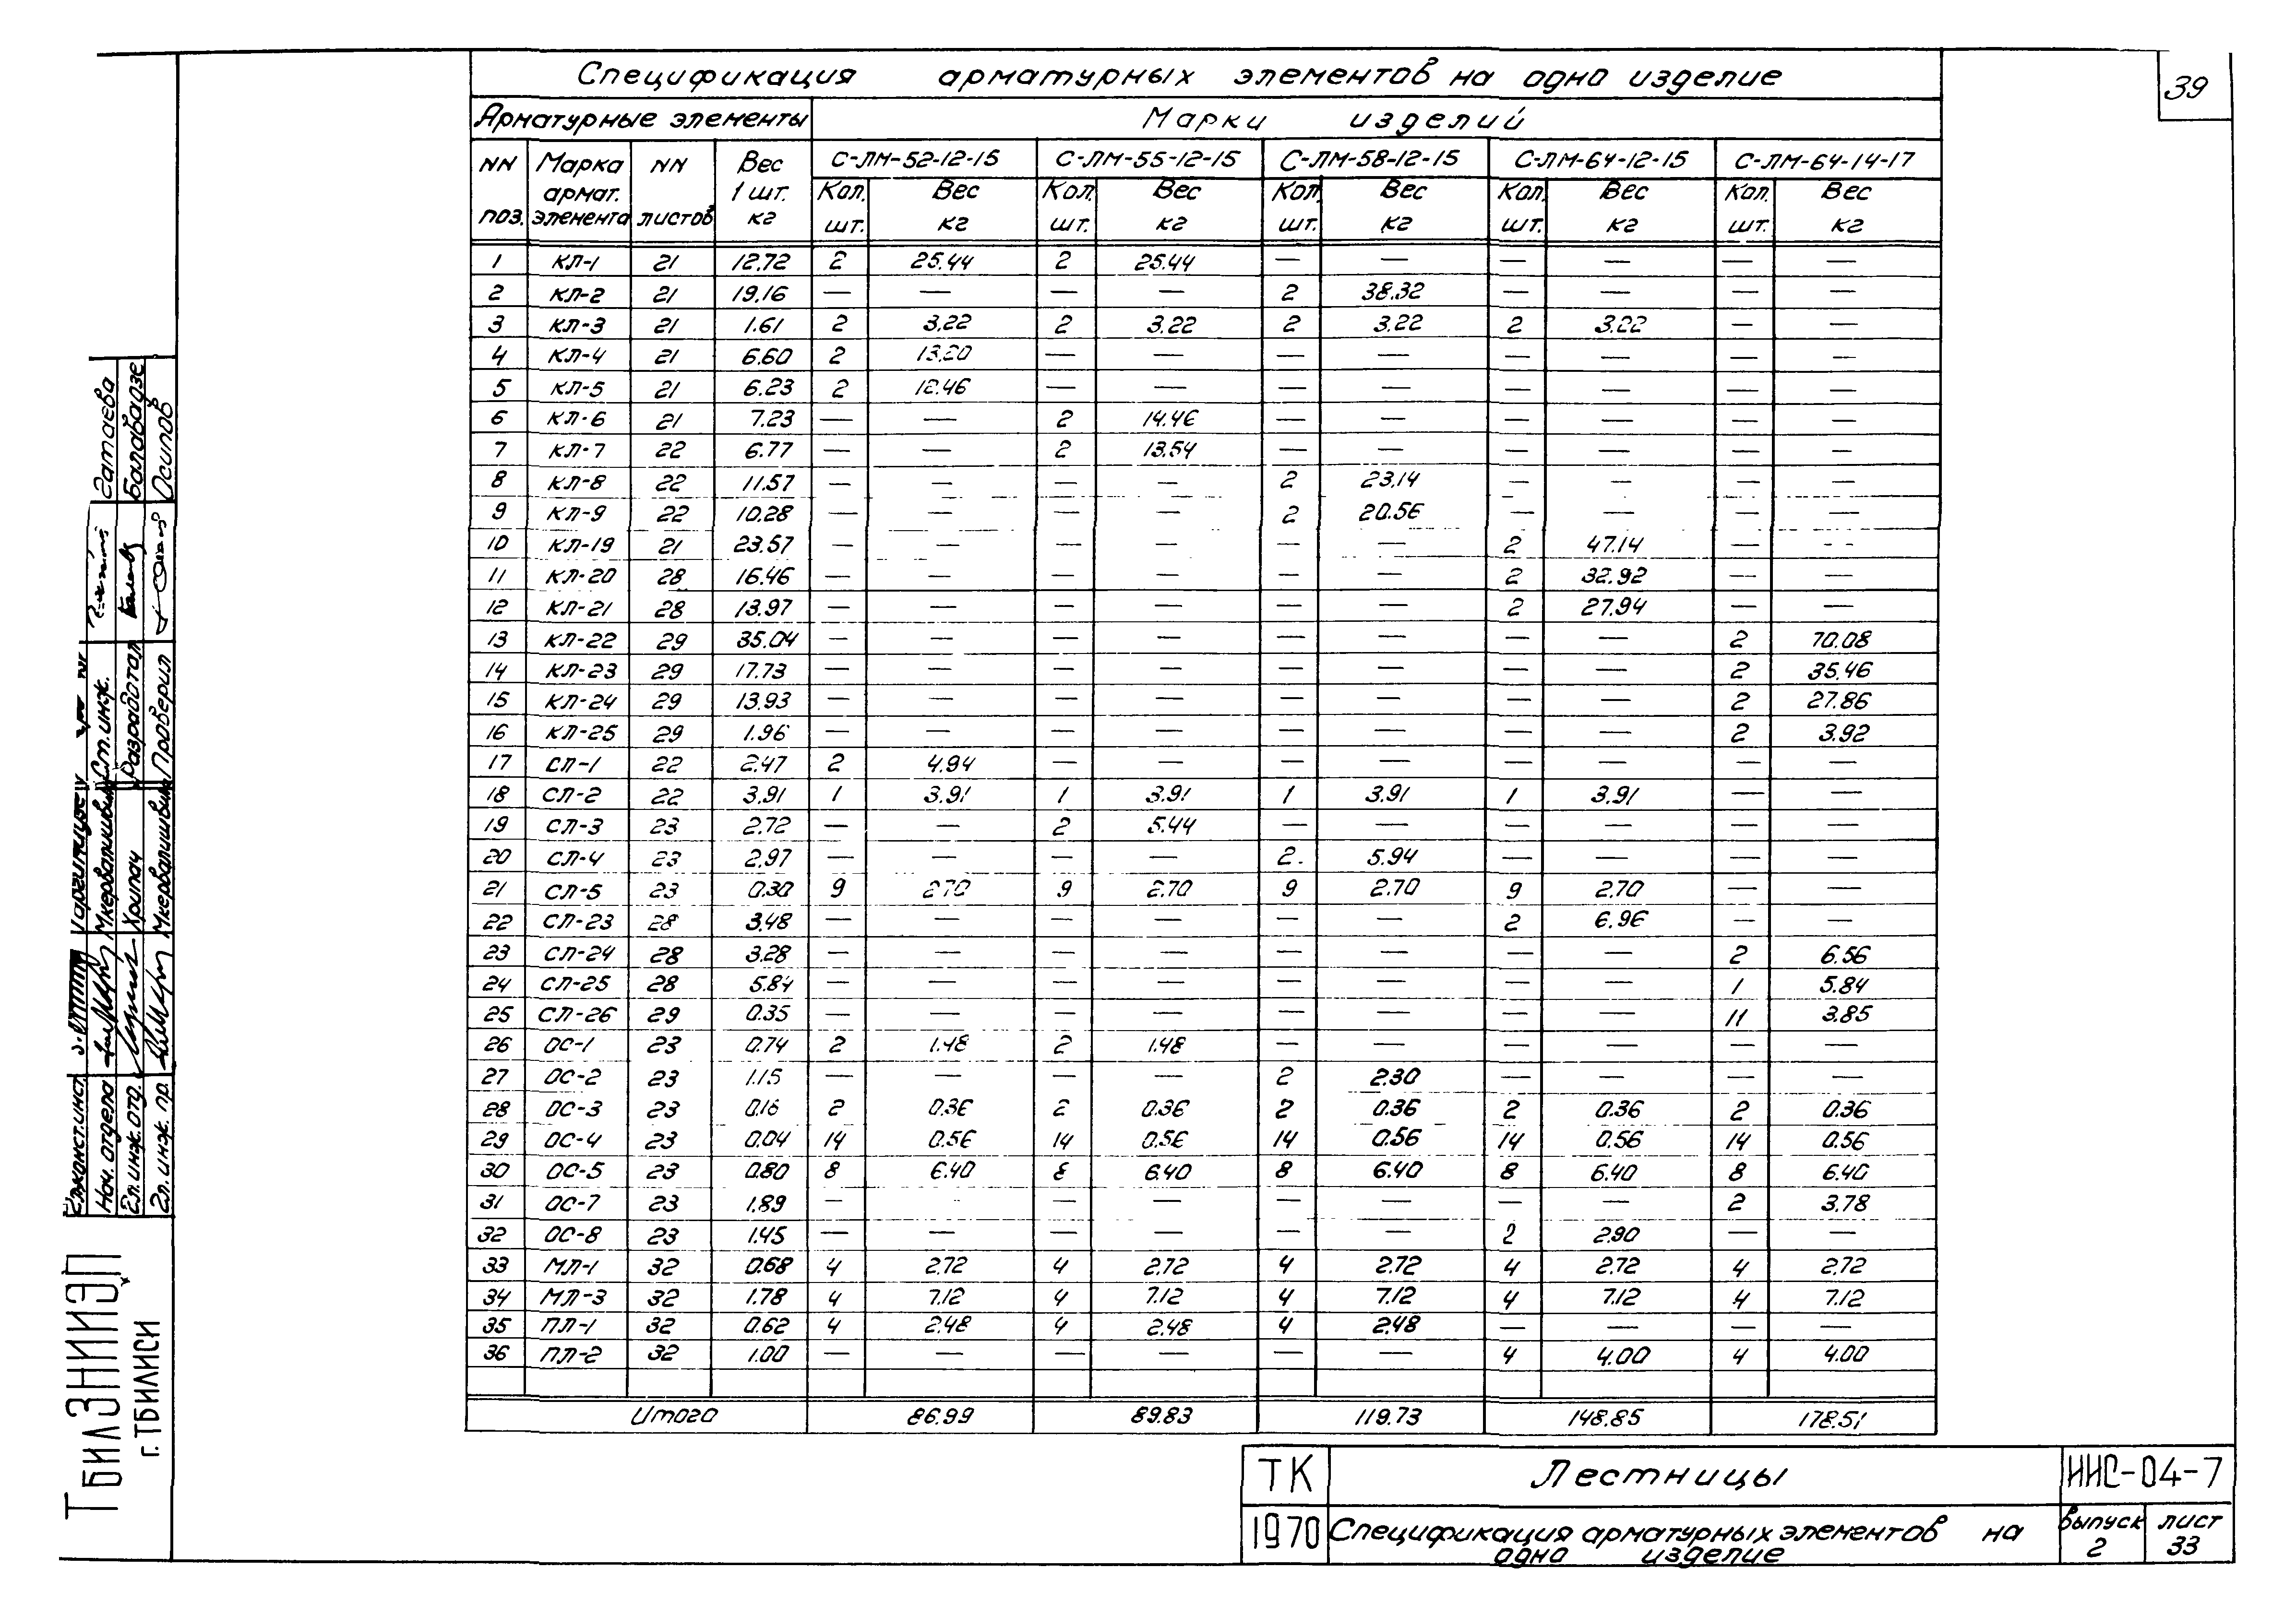 39
Спецификация арматурных элементов на одно изделие
Арматурные элементы Марки изделий
NN поз. Марка армат. элемента NN листов Вес 1 шт. кг С-ЛМ-52-12-15 С-ЛМ-55-12-15 С-ЛМ-58-12-15 С-ЛМ-64-12-15 С-ЛМ-64-14-17
Кол. шт. Вес кг Кол. шт. Вес кг Кол. шт. Вес кг Кол. шт. Вес кг Кол. шт. Вес кг
1 КЛ-1 21 12.72 2 25.44 2 25.44 — — — — — —
2 КЛ-2 21 19.16 — — — — 2 38.32 — — — —
3 КЛ-3 21 1.61 2 3.22 2 3.22 2 3.22 2 3.22 — —
4 КЛ-4 21 6.60 2 13.20 — — — — — — — —
5 КЛ-5 21 6.23 2 12.46 — — — — — — — —
6 КЛ-6 21 7.23 — — 2 14.46 — — — — — —
7 КЛ-7 22 6.77 — — 2 13.54 — — — — — —
8 КЛ-8 22 11.57 — — — — 2 23.14 — — — —
9 КЛ-9 22 10.28 — — — — 2 20.56 — — — —
10 КЛ-19 21 23.57 — — — — — — 2 47.14 — —
11 КЛ-20 28 16.46 — — — — — — 2 32.92 — —
12 КЛ-21 28 13.97 — — — — — — 2 27.94 — —
13 КЛ-22 29 35.04 — — — — — — — — 2 70.08
14 КЛ-23 29 17.73 — — — — — — — — 2 35.46
15 КЛ-24 29 13.93 — — — — — — — — 2 27.86
16 КЛ-25 29 1.96 — — — — — — — — 2 3.92
17 СЛ-1 22 2.47 2 4.94 — — — — — — — —
18 СЛ-2 22 3.91 1 3.91 1 3.91 1 3.91 1 3.91 — —
19 СЛ-3 23 2.72 — — 2 5.44 — — — — — —
20 СЛ-4 23 2.97 — — — — 2. 5.94 — — — —
21 СЛ-5 23 0.30 9 2.70 9 2.70 9 2.70 9 2.70 — —
22 СЛ-23 28 3.48 — — — — — — 2 6.96 — —
23 СЛ-24 28 3.28 — — — — — — — — 2 6.56
24 СЛ-25 28 5.84 — — — — — — — — 1 5.84
25 СЛ-26 29 0.35 — — — — — — — — 11 3.85
26 ОС-1 23 0.74 2 1.48 2 1.48 — — — — — —
27 ОС-2 23 1.15 — — — — 2 2.30 — — — —
28 ОС-3 23 0.18 2 0.36 2 0.36 2 0.36 2 0.36 2 0.36
29 ОС-4 23 0.04 14 0.56 14 0.56 14 0.56 14 0.56 14 0.56
30 ОС-5 23 0.80 8 6.40 8 6.40 8 6.40 8 6.40 8 6.40
31 ОС-7 23 1.89 — — — — — — — — 2 3.78
32 ОС-8 23 1.45 — — — — — — 2 2.90 — —
33 МЛ-1 32 0.68 4 2.72 4 2.72 4 2.72 4 2.72 4 2.72
34 МЛ-3 32 1.78 4 7.12 4 7.12 4 7.12 4 7.12 4 7.12
35 ПЛ-1 32 0.62 4 2.48 4 2.48 4 2.48 — — — —
36 ПЛ-2 32 1.00 — — — — — — 4 4.00 4 4.00
Итого 86.99 89.83 119.73 148.85 178.51
ТК Лестницы ИИС-04-7
1970 Спецификация арматурных элементов на одно изделие выпуск 2 лист 33
Гл.конст.инст.
Нач. отдела Мкервалишвили Ст.инж. Гатаева
Гл.инж.отд. Хрипач Разработал Балавадзе
Гл.инж. пр. Мкервалишвили Проверил Осипов
ТбилЗНИИЭП
г. ТБИЛИСИ